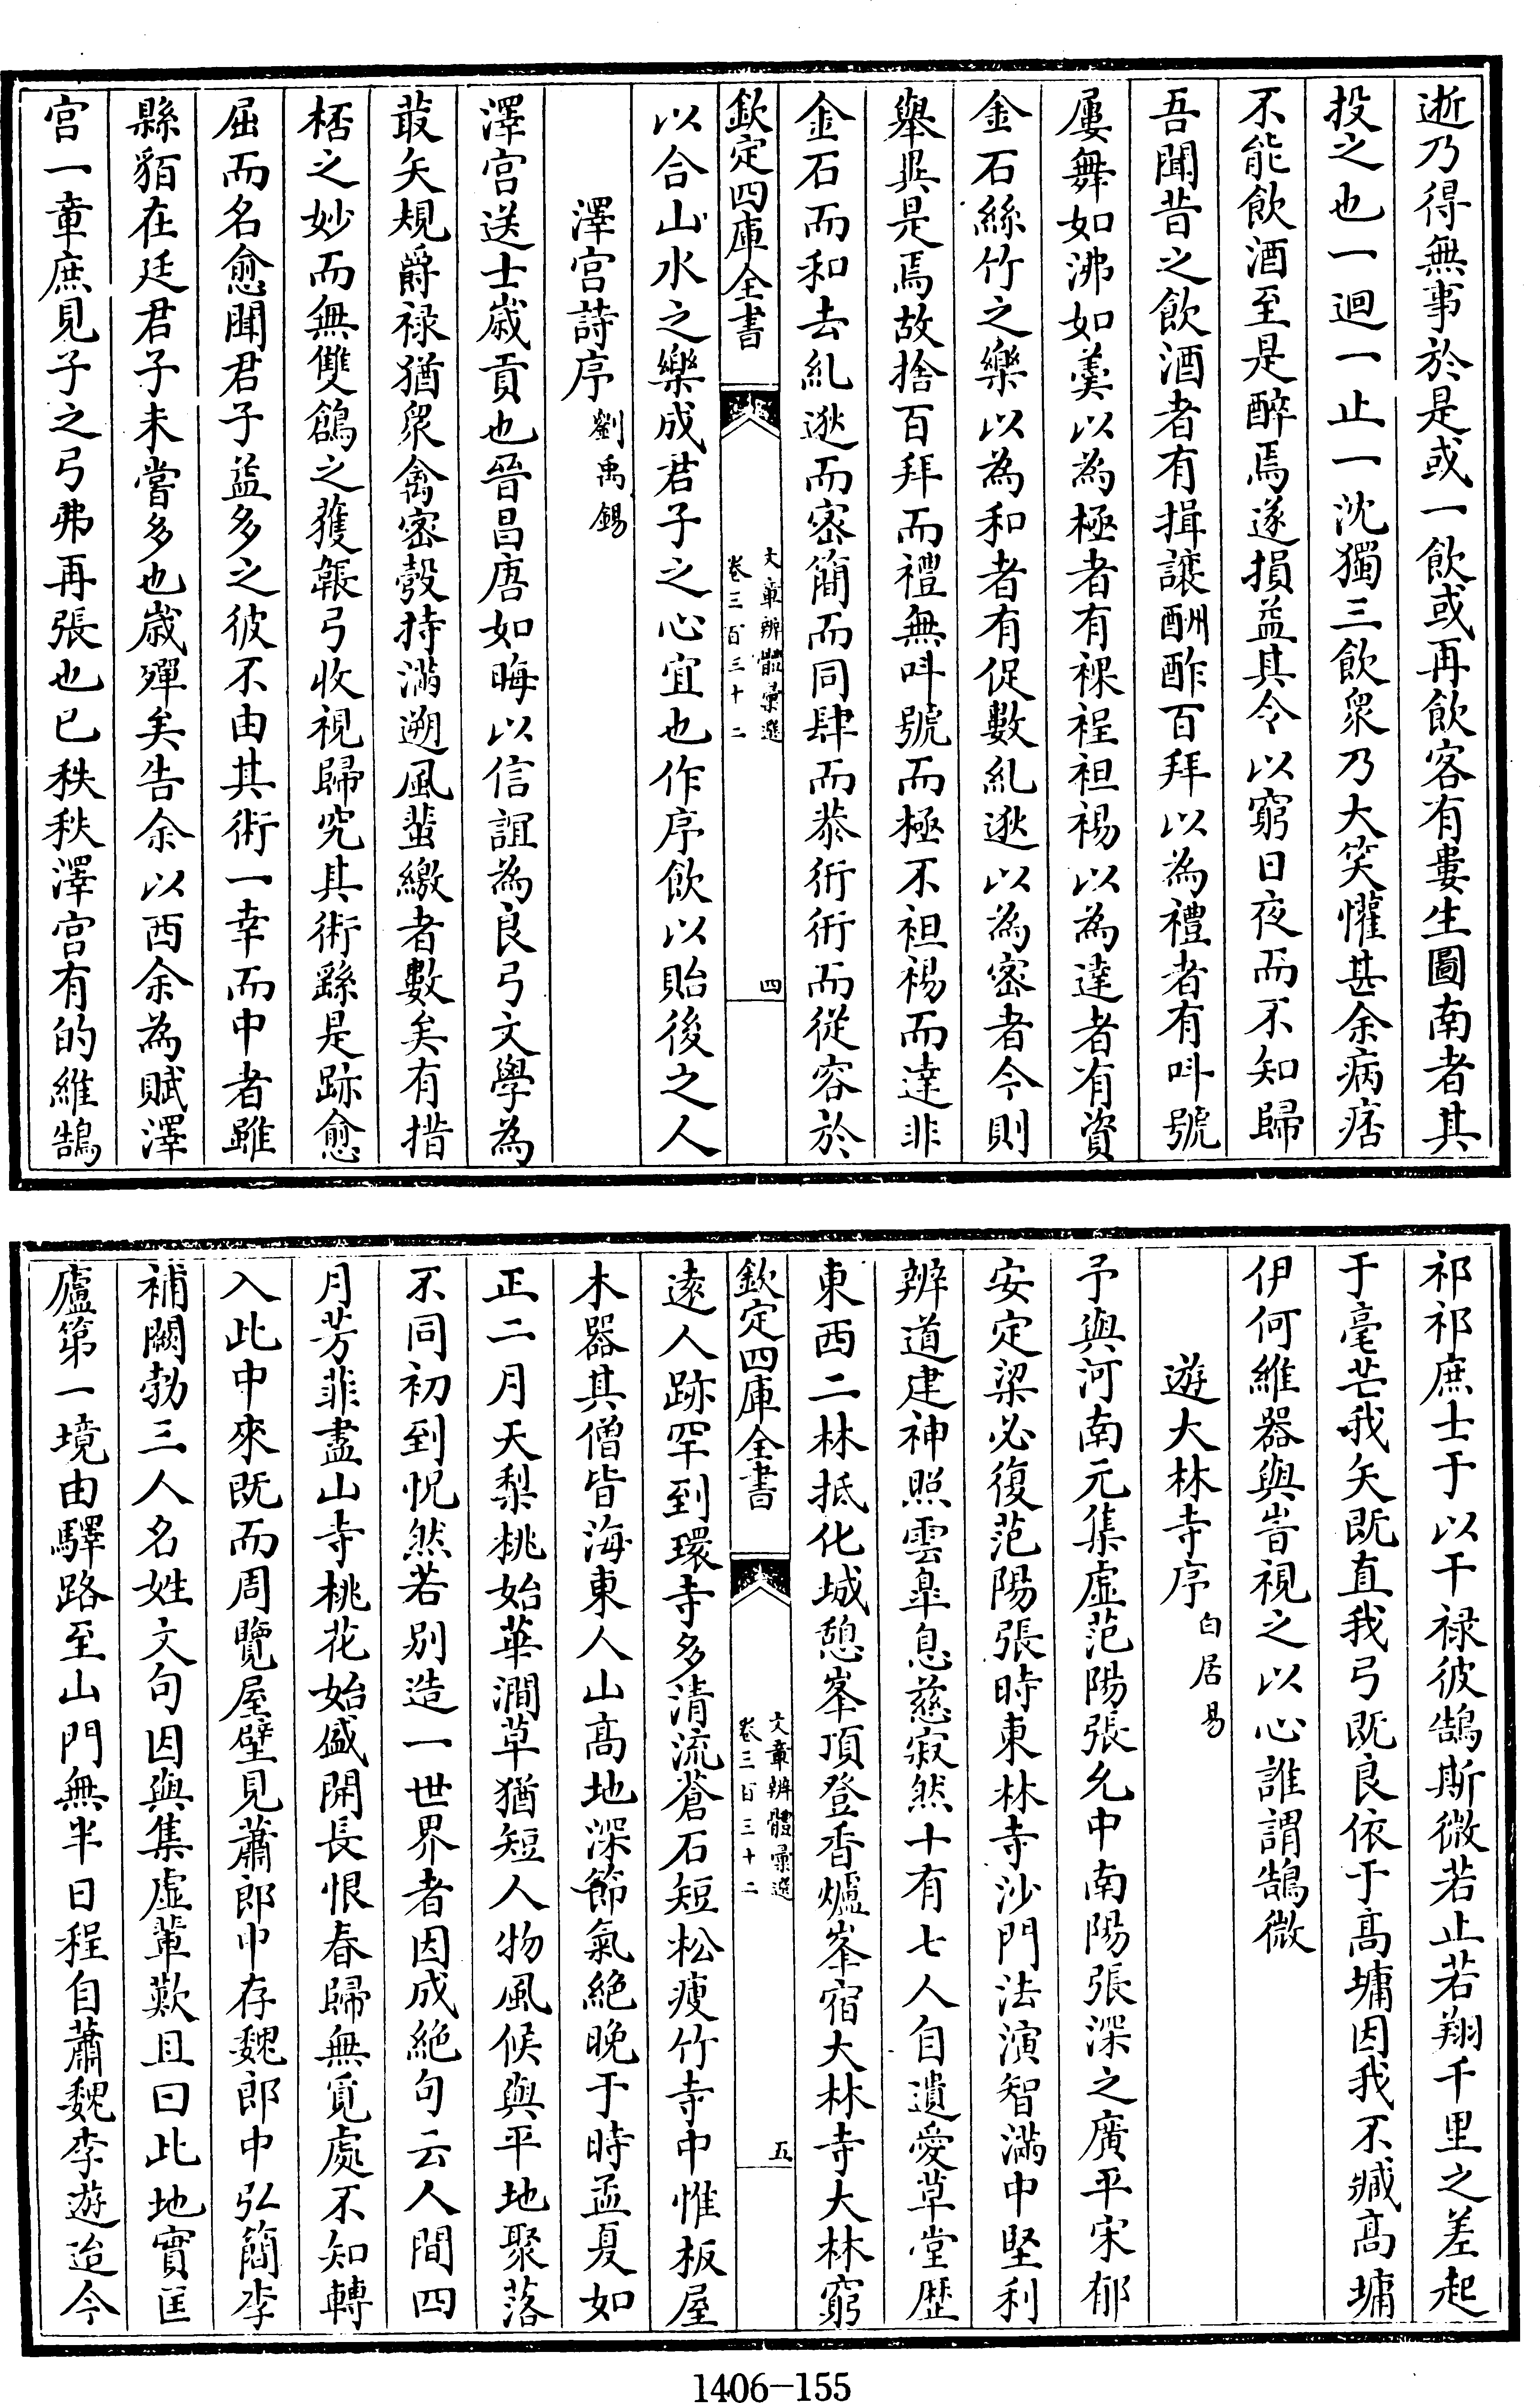 逝乃得無事於是或一飲或再飲客有婁生圖南者其
投之也一迴一止一沈獨三飲衆乃大笑懽甚余病痞
不能飲酒至是醉焉遂損益其令以窮日夜而不知歸
吾聞昔之飲酒者有揖譲酬酢百拜以為禮者有呌號
屢舞如沸如羮以為極者有裸裎袒裼以為達者有資
金石絲竹之樂以為和者有促數糺逖以為宻者今則
舉異是焉故捨百拜而禮無呌號而極不袒裼而達非
金石而和去糺逖而宻簡而同肆而恭衎衎而從容於
欽定四庫全書
文章辨體彙選
卷三百三十二
四
以合山水之樂成君子之心宜也作序飲以貽後之人
澤宫詩序劉禹錫
澤宫送士歳貢也晉昌唐如晦以信誼為良弓文學為
菆矢規爵禄猶衆禽宻彀持滿遡風蜚繳者數矣有措
栝之妙而無雙鶬之獲韔弓收視歸究其術繇是跡愈
屈而名愈聞君子益多之彼不由其術一幸而中者雖
縣貊在廷君子未嘗多也歳殫矣告余以西余為賦澤
宫一章庶見子之弓弗再張也已秩秩澤宫有的維鵠
祁祁庶士于以干禄彼鵠斯微若止若翔千里之差起
于毫芒我矢既直我弓既良依于髙墉因我不臧髙墉
伊何維器與旹視之以心誰謂鵠微
遊大林寺序白居易
予與河南元集虚范陽張允中南陽張深之廣平宋郁
安定梁必復范陽張時東林寺沙門法演智滿中堅利
辨道建神照雲臯息慈寂然十有七人自遺愛草堂歴
東西二林抵化城憩峯頂登香爐峯宿大林寺大林窮
欽定四庫全書
文章辨體彙選
卷三百三十二
五
逺人跡罕到環寺多清流蒼石短松瘦竹寺中惟板屋
木器其僧皆海東人山髙地深節氣絶晚于時孟夏如
正二月天梨桃始華澗草猶短人物風候與平地聚落
不同初到怳然若别造一世界者因成絶句云人間四
月芳菲盡山寺桃花始盛開長恨春歸無覓處不知轉
入此中來既而周覽屋壁見蕭郎中存魏郎中弘簡李
補闕勃三人名姓文句因與集虚軰歎且曰此地實匡
廬第一境由驛路至山門無半日程自蕭魏李遊迨今
1406-155